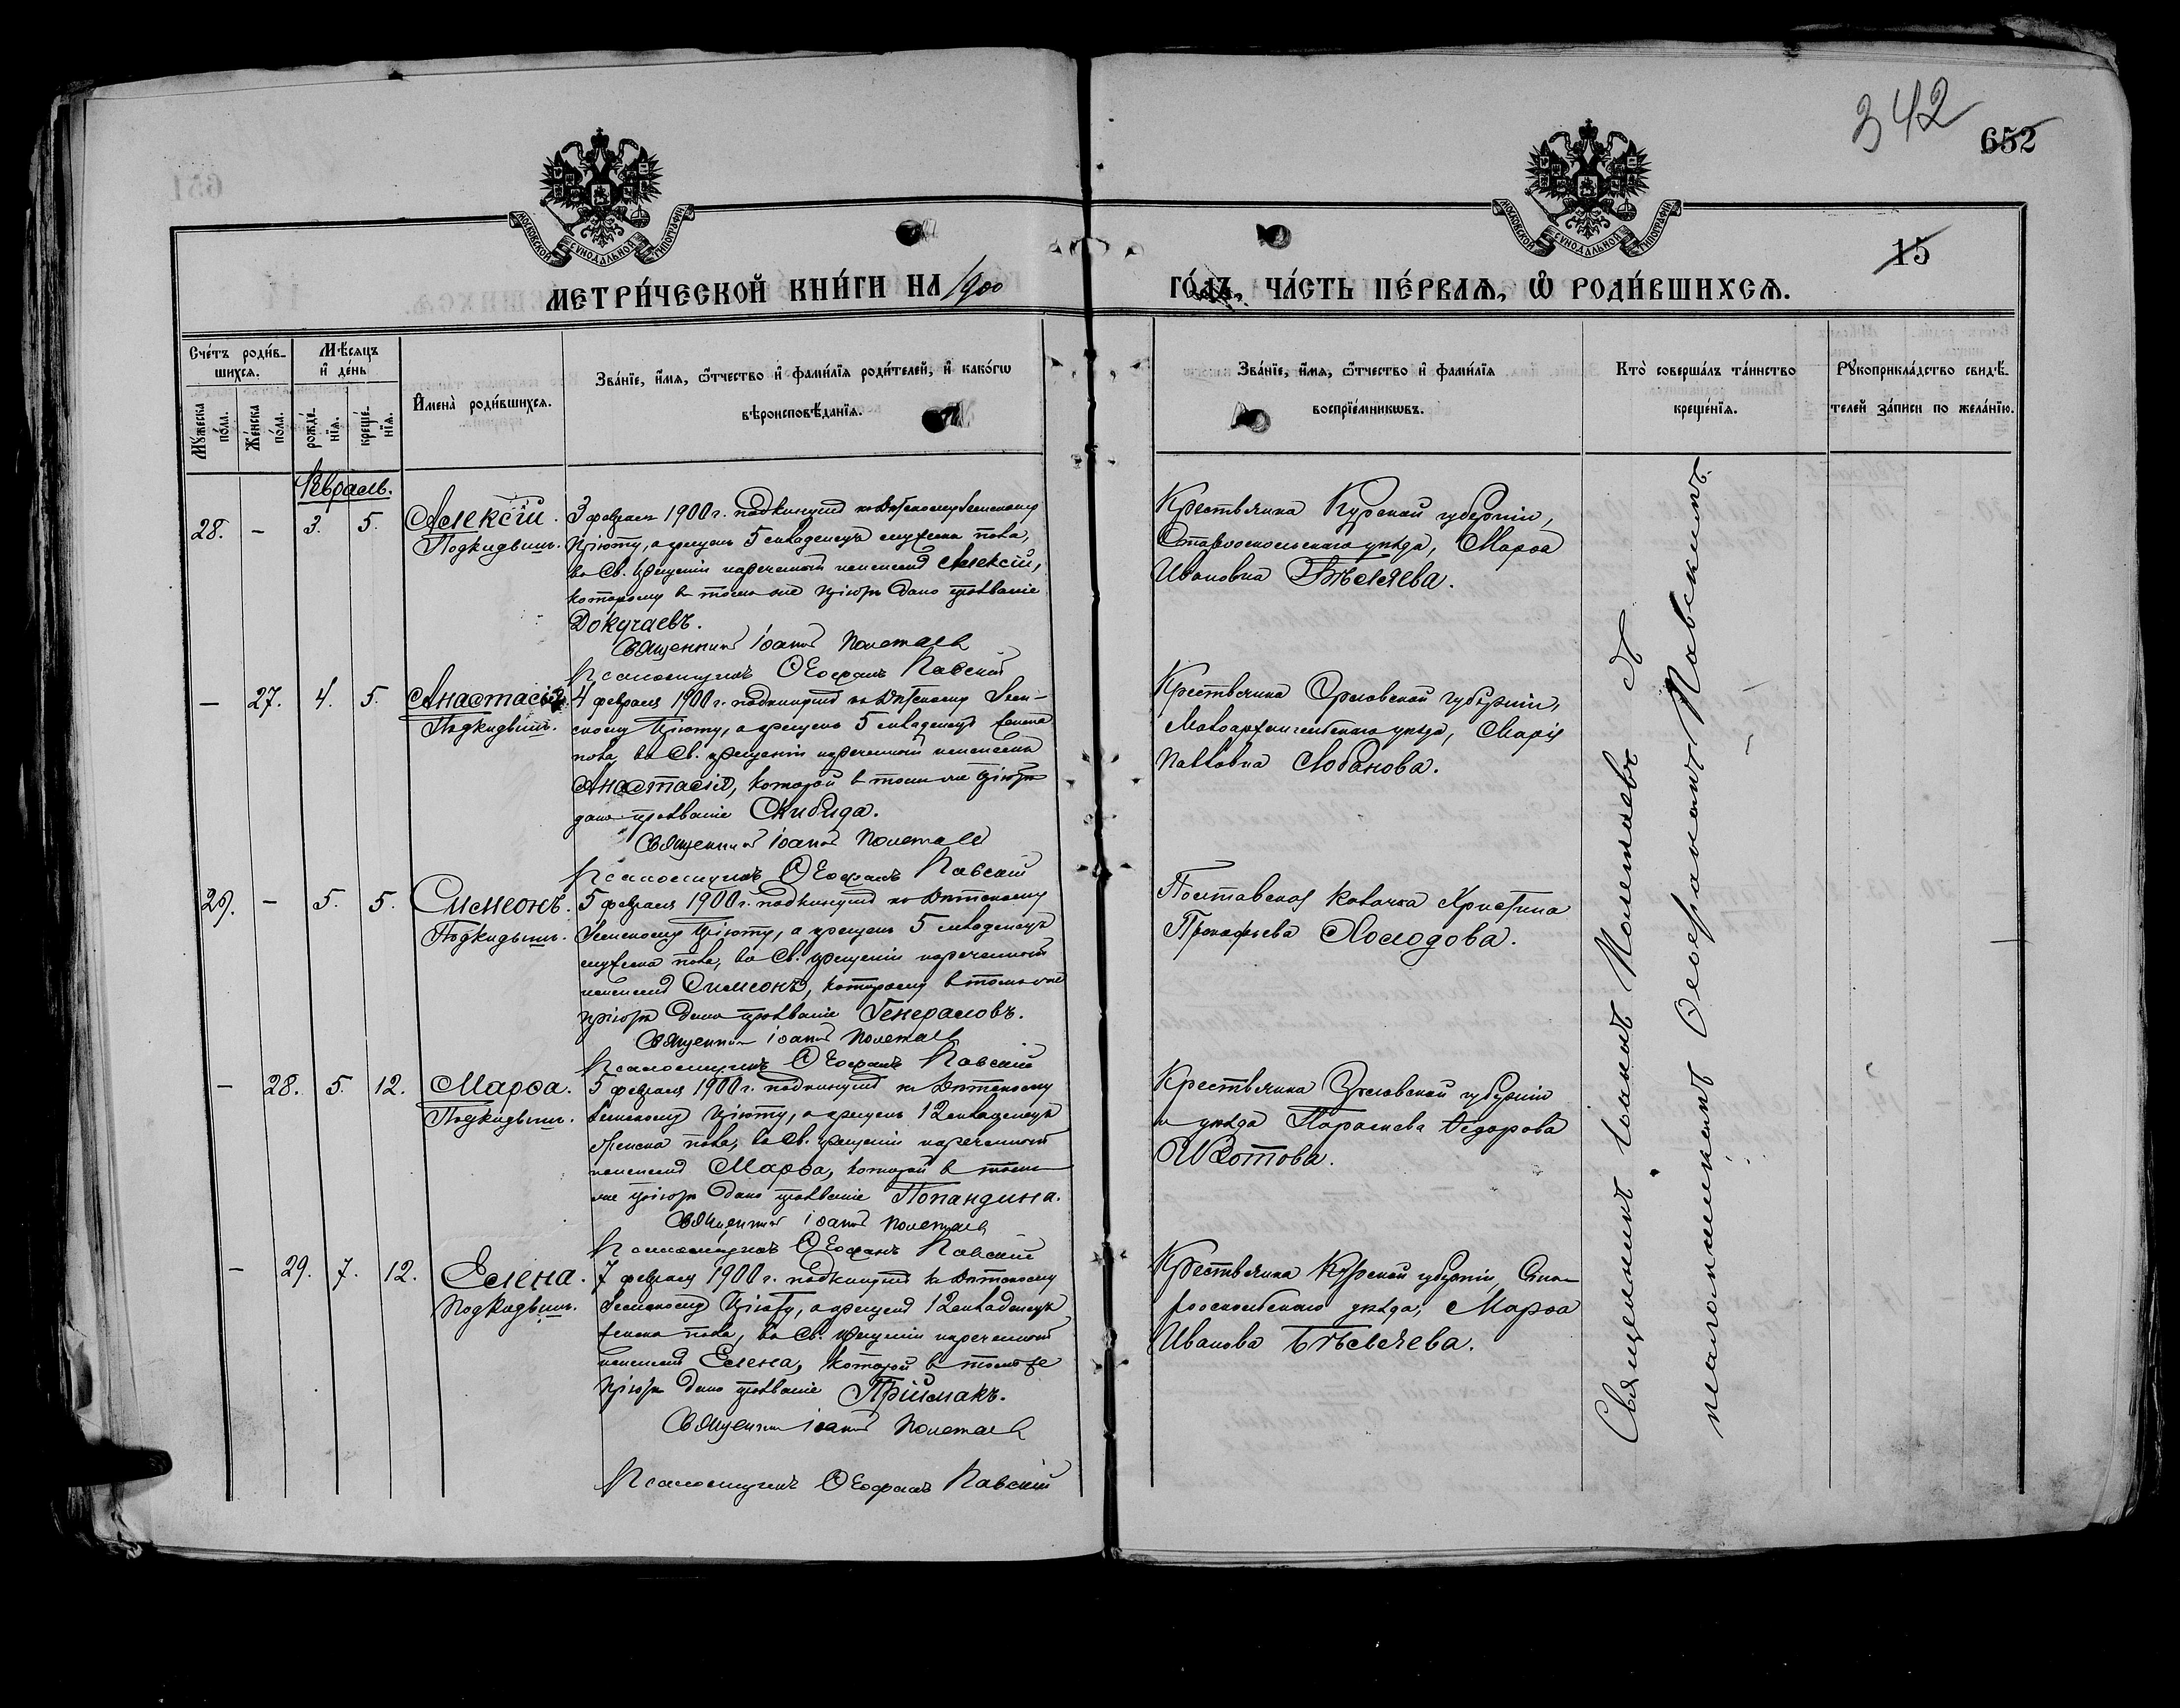 342
652
651
МОСКОВСКОЙ СУНОДАЛЬНОЙ ТИПОГРАФІИ
МОСКОВСКОЙ СУНОДАЛЬНОЙ ТИПОГРАФІИ
15
МЕТРИ́ЧЕСКОЙ КНИ́ГИ НА 1900
ГО́ДЪ, ЧА́СТЬ ПЕ́РВАѦ, Ѽ РОДИ́ВШИХСѦ.
Сче́тъ роди́в-
шихсѧ.
Мꙋ́жеска по́ла.
Же́нска по́ла.
Мѣ́сѧцъ
и҆ де́нь
рожде́-
нїѧ.
креще́-
нїѧ.
И҆мена̀ роди́вшихсѧ.
Зва́нїе, и҆́мѧ, ѻ҆́тчество и҆ фами́лїѧ роди́телей, и҆ како́гѡ
вѣроисповѣ́данїѧ.
Зва́нїе, и҆́мѧ, ѻ҆́тчество и҆ фами́лїѧ
воспрїе́мникѡвъ.
Кто̀ соверша́лъ та́инство
креще́нїѧ.
Рꙋкоприкла́дство свидѣ́-
телей за́писи по жела́нїю.
Февраль.
28. – 3. 5. Алексѣй.
Подкидышъ.
3 февраля 1900 г. подкинутъ къ Дѣтскому Земскому
пріюту, а крещенъ 5 младенецъ мужеска пола,
во Св. крещеніи нареченный именемъ Алексій,
которому въ томъ же пріютѣ дано прозваніе
Докучаевъ.
Священникъ Іоаннъ Полетаевъ
Псаломщикъ Ѳеофанъ Павскій
Крестьянка Курской губерніи,
Старооскольскаго уѣзда, Марѳа
Ивановна Бѣляева.
– 27. 4. 5. Анастасія
Подкидышъ.
4 февраля 1900 г. подкинутъ къ Дѣтскому Зем-
скому пріюту, а крещенъ 5 младенецъ женска
пола, во Св. крещеніи нареченный именемъ
Анастасія, которой въ томъ же пріютѣ
дано прозваніе Скибида.
Священникъ Іоаннъ Полетаевъ
Псаломщикъ Ѳеофанъ Павскій
Крестьянка Орловской губерніи,
Малоархангельскаго уѣзда, Марія
Павловна Лобанова.
29. – 5. 5. Симеонъ.
Подкидышъ.
5 февраля 1900 г. подкинутъ къ Дѣтскому
Земскому пріюту, а крещенъ 5 младенецъ
мужеска пола, во Св. крещеніи нареченный
именемъ Симеонъ, которому въ томъ же
пріютѣ дано прозваніе Генераловъ.
Священникъ Іоаннъ Полетаевъ
Псаломщикъ Ѳеофанъ Павскій
Полтавская казачка Христина
Прокофьева Холодова.
– 28. 5. 12. Марѳа.
Подкидышъ.
5 февраля 1900 г. подкинутъ къ Дѣтскому
Земскому пріюту, а крещенъ 12 младенецъ
женска пола, во Св. крещеніи нареченный
именемъ Марѳа, которой въ томъ
же пріютѣ дано прозваніе Попандина.
Священникъ Іоаннъ Полетаевъ
Псаломщикъ Ѳеофанъ Павскій
Крестьянка Орловской губерніи
и уѣзда Параскева Ѳедорова
– 29. 7. 12. Елена.
Подкидышъ.
7 февраля 1900 г. подкинутъ къ Дѣтскому
Земскому пріюту, а крещенъ 12 младенецъ
женска пола, во Св. крещеніи нареченный
именемъ Елена, которой въ томъ же
пріютѣ дано прозваніе Пріймакъ.
Священникъ Іоаннъ Полетаевъ
Псаломщикъ Ѳеофанъ Павскій
Крестьянка Курской губерніи, Ста-
рооскольскаго уѣзда, Марѳа
Иванова Бѣляева.
Священникъ Іоаннъ Полетаевъ съ
псаломщикомъ Ѳеофаномъ Павскимъ.